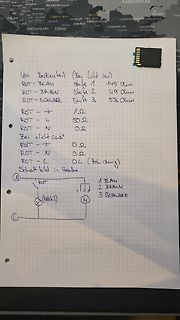 Von Bedienteil (Bei Licht an)
ROT-BLAU Stufe 1 145 Ohm
ROT-BRAUN Stufe 2 49 Ohm
ROT-SCHWARZ Stufe 3 53 Ohm
ROT - 1Ω
ROT - L 50Ω
ROT - N 0Ω
Bei Licht aus
ROT - 0Ω
ROT - N 0Ω
ROT - L OL
Schaltbild in Haube
ROT
1 BLAU
2 BRAUN
3 SCHWARZ